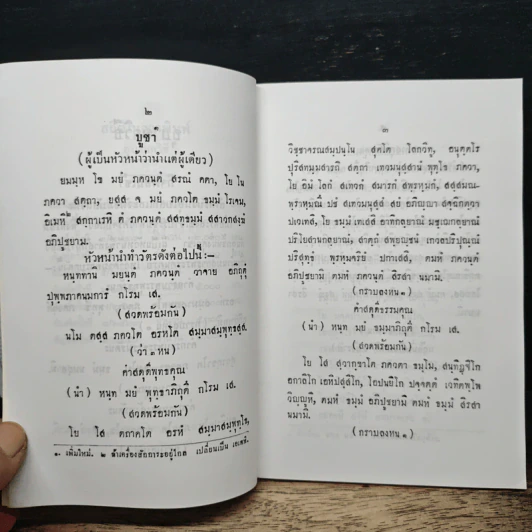 ๒
บูชา
(ผู้เป็นหัวหน้าว่านำแต่ผู้เดียว)
ยมมฺห โข มยํ ภควนฺตํ สรณํ คตา, โย โน
ภควา สตฺถา, ยสฺส จ มยํ ภควโต ธมฺมํ โรเจม,
อิเมหิ สกฺกาเรหิ ตํ ภควนฺตํ สสทฺธมฺมํ สสาวกสงฺฆํ
อภิปูชยาม.
หัวหน้านำทำวัตรดังต่อไปนี้:–
หนฺททานิ มยนฺตํ ภควนฺตํ วาจาย อภิคายิตุํ
ปุพฺพภาคนมการํ กโรม เส.
(สวดพร้อมกัน)
นโม ตสฺส ภควโต อรหโต สมฺมาสมฺพุทฺธสฺส.
(ว่า ๓ หน)
คำสดุดีพุทธคุณ
(นำ) หนฺท มยํ พุทฺธาภิถุตึ กโรม เส.
(สวดพร้อมกัน)
โย โส ตถาคโต อรหํ สมฺมาสมฺพุทฺโธ,
๑. เพิ่มใหม่. ๒ ถ้าเครื่องสักการะอยู่ไกล เปลี่ยนเป็น
๓
วิชฺชาจรณสมฺปนฺโน สุคโต โลกวิทู, อนุตฺตโร
ปุริสทมฺมสารถิ สตฺถา เทวมนุสฺสานํ พุทฺโธ ภควา,
โย อิมํ โลกํ สเทวกํ สมารกํ สพฺรหฺมกํ, สสฺสมณ–
พฺราหฺมณึ ปชํ สเทวมนุสฺสํ สยํ อภิญฺญา สจฺฉิกตฺวา
ปเวเทสิ, โย ธมฺมํ เทเสสิ อาทิกลฺยาณํ มชฺเฌกลฺยาณํ
ปริโยสานกลฺยาณํ, สาตฺถํ สพฺยญฺชนํ เกวลปริปุณฺณํ
ปริสุทฺธํ พฺรหฺมจริยํ ปกาเสสิ, ตมหํ ภควนฺตํ
อภิปูชยามิ ตมหํ ภควนฺตํ สิรสา นมามิ.
(กราบลงหน ๑)
คำสดุดีธรรมคุณ
(นำ) หนฺท มยํ ธมฺมาภิถุตึ กโรม เส.
(สวดพร้อมกัน)
โย โส สฺวากฺขาโต ภควตา ธมฺโม, สนฺทิฏฺฐิโก
อกาลิโก เอหิปสฺสิโก, โอปนยิโก ปจฺจตฺตํ เวทิตพฺโพ
วิญฺญูหิ, ตมหํ ธมฺมํ อภิปูชยามิ ตมหํ ธมฺมํ สิรสา
นมามิ.
(กราบลงหน ๑)